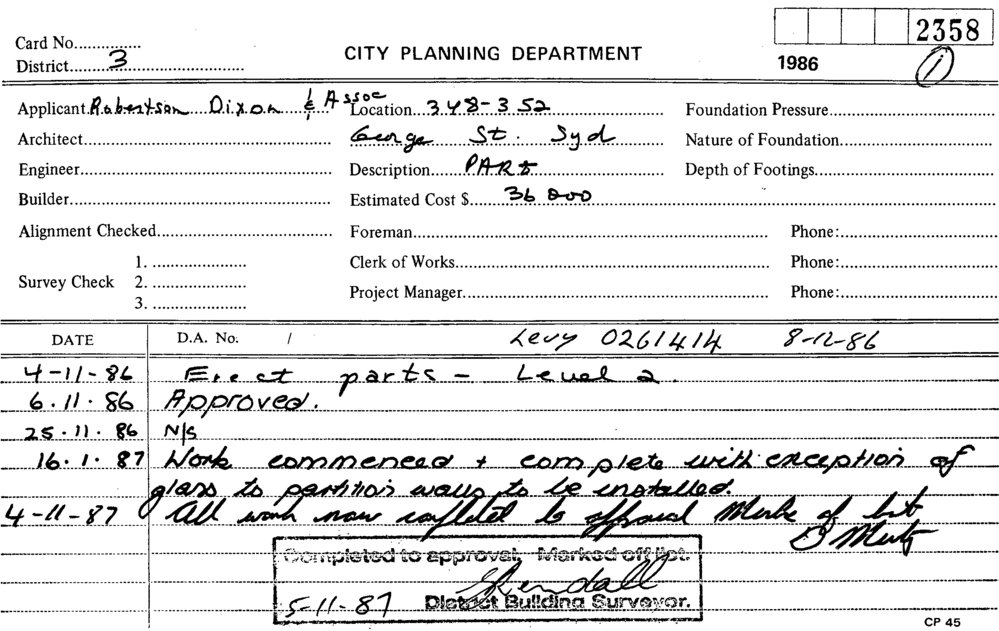 2358
Card No.
CITY PLANNING DEPARTMENT
District 3
1986
1
Applicant Robertson Dixon & Assoc Location 348-352 Foundation Pressure
Architect George St. Syd Nature of Foundation
Engineer Description PARTS Depth of Footings
Builder Estimated Cost $ 36 000
Alignment Checked Foreman Phone:
Survey Check 1. 2. 3.
Clerk of Works Phone:
Project Manager Phone:
DATE D.A. No. / Levy 0261414 8-12-86
4-11-86 Erect parts - Level 2.
6.11.86 Approved.
25.11.86 N/S
16.1.87 Work commenced + complete with exception of
glass to partition walls to be installed.
4-11-87 All work now complete to approval Marke of list
Completed to approval. Marked off list.
Kendall
5-11-87 District Building Surveyor.
CP 45